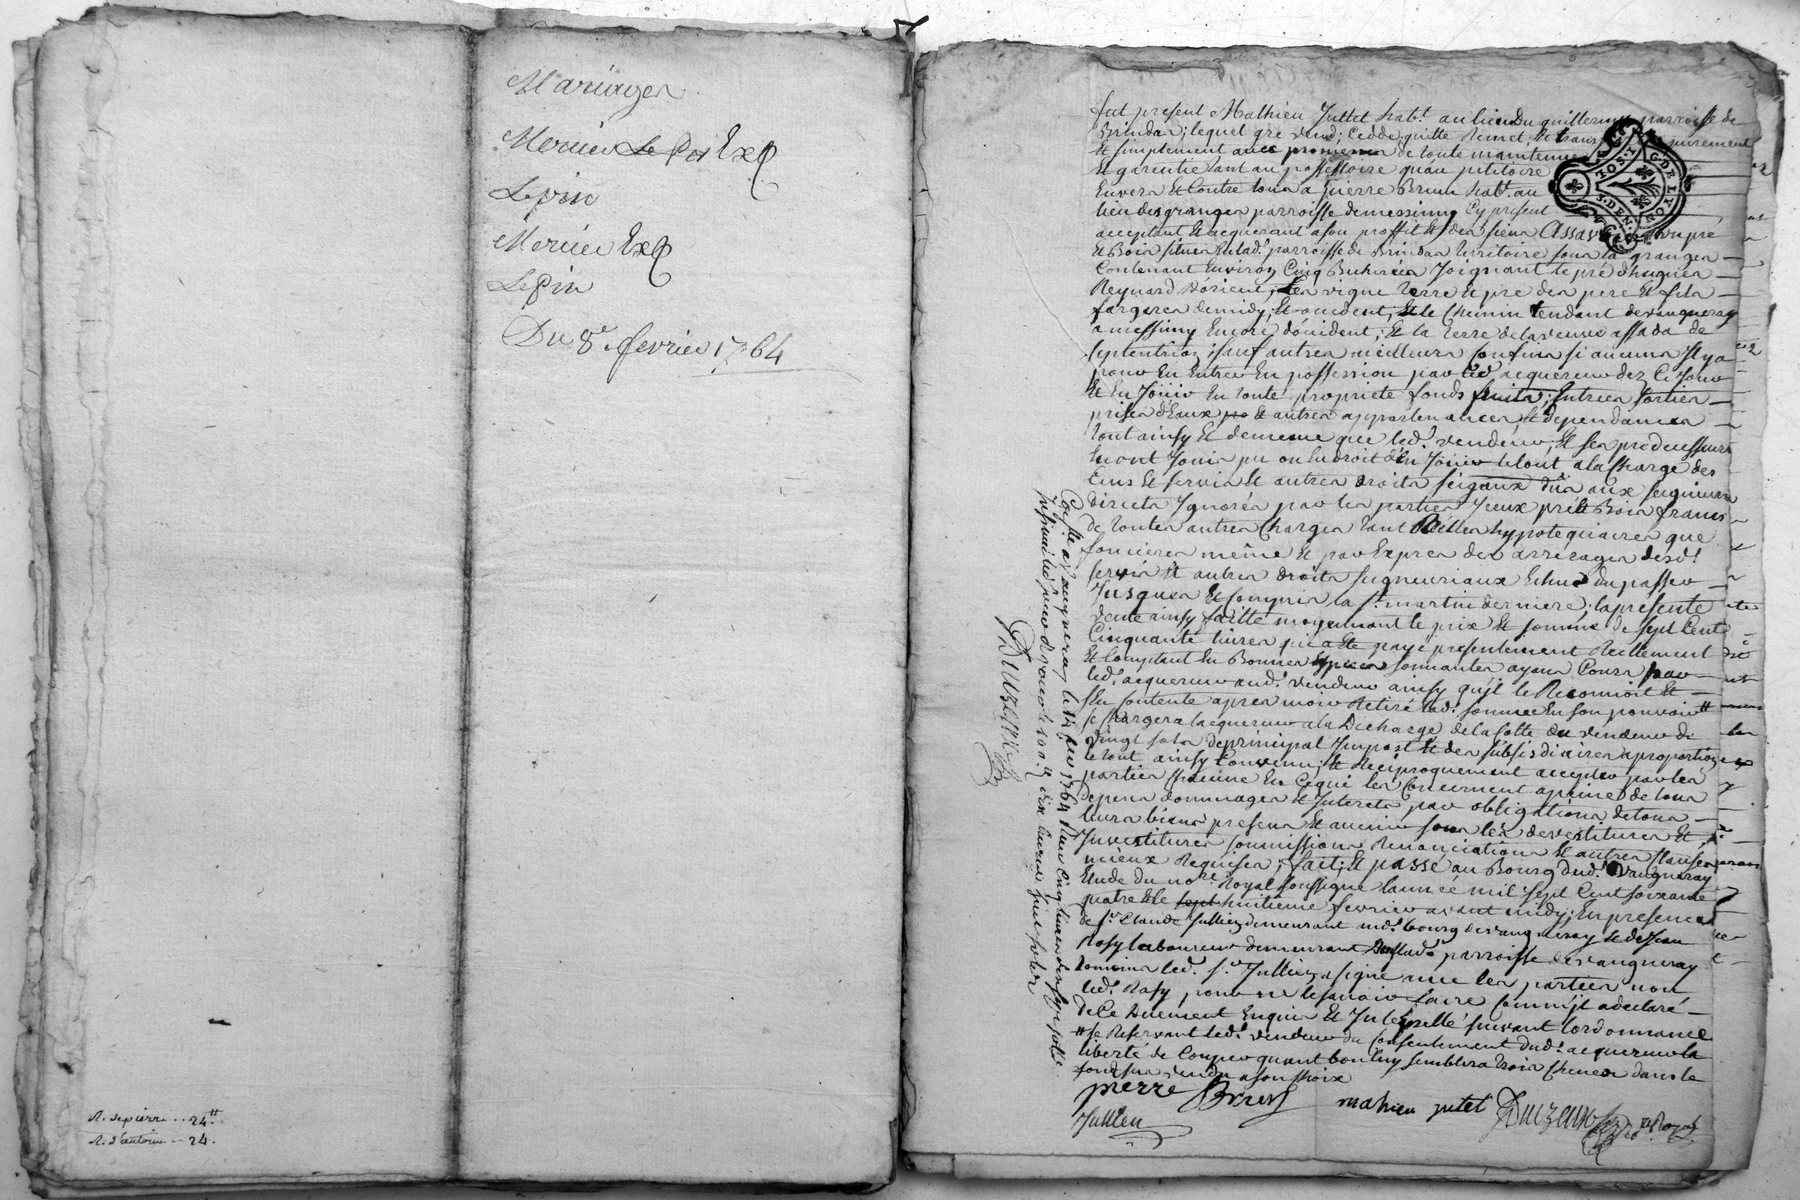 Mariages
Mercier Le Pin Exp
Lepin
Mercier Exp
Lepin
Du 8e fevrier 1764
R. de pierre -- 24tt
R. d'antoine -- 24.
fut present Mathieu Jullet habt. au lieu du guillermy parroisse de
Brindas, lequel gré vend, cedde quitte remet, et trans purement
et simplement avec promesse de toute maintenue
et garentie tant au possessoire qu'au petitoire
Envers et Contre tous a pierre Brun habt. au
lieu des granges parroisse de messimy cy present
acceptant et acquerant a son proffit et des siens Assavoir un pré
et Bois situés Enlad. parroisse de Brindas territoire sous la granges
Contenant Environ Cinq Bicherées Joignant le pré d'hugues
Reynard d'orient, les vigne terre et pré des pere et fils
farges de midy, et occident, et le Chemin tendant de vaugneray
a messimy Encore d'occident; et la terre de la veuve assada de
septentrion, sauf autres meilleurs confins si aucuns Il y a
pour En Entrer En possession par led. acquereur dez Ce Jour
et En Jöuir En toute propriete fonds fruits, Entrées sorties
prises d'Eaux et autres appartenances et dependances
tout ainsy et de meme que led. vendeur, et ses predecesseurs
En ont Jouis pu ou En droit d'En Jöuir le tout a la Charge des
Cens et servis et autres droits seigaux dûs aux seigneurs
Directs Ignorés par les parties Iceux pré et Bois francs
de toutes autres Charges tant Réelles hypotequaires que
foncieres même et par Exprès des arrerages desd.
servis et autres droits seigneuriaux Echus du passé
Jusques et Compris la st. martin derniere; la presente
vente ainsy faitte moyennant le prix et somme de sept Cent
Cinquante livres qui a été payé presentement Réellement
et Comptant En Bonnes Especes sonnantes ayans Cours par
led. acquereur aud. vendeur ainsy qu'il le Reconnoit et
s'En contente apres avoir Retiré lad. somme En son pouvoir #
se chargera lacquereur a la Decharge de la Cotte du vendeur de
vingt sols de principal Impost et des subsidiaires a proportion
le tout ainsy Convenu, et Reciproquement accepté par les
parties chacune En ce qui les Concernent a peine de tous
depens dommages et Interets par obligations de tous
leurs biens presens et avenir sous les devestitures et
Investitures soumissions Renonciations et autres clauses
mieux Requises; fait; et passé au Bourg dud. Vaugneray
Etude du nore. Royal soussigné lan née mil sept Cent soixante
quatre et le sept huitieme fevrier avant midy; En presence
de sr. Claude Jullien demeurant aud. bourg de vaugneray et de Jean
Rosy laboureur demeurant Enlad. parroisse de vaugneray
temoins led. sr. Jullien a signé avec les parties non
led. Rosy pour ne le savoir faire Comm'il a declaré
de Ce Duement Enquis et Interpellé suivant l'ordonnance
# se Reservant led. vendeur du Consentement dud. acquereur la
liberté de Couper quant bon luy semblera trois Chenes dans le
fonds vendu a son choix
pierre Brun mathieu jutet Duzeux nre Royal
Jullien
Collé a vaugneray le 14. fev 1764 Reçu cinq livres
Duzeux